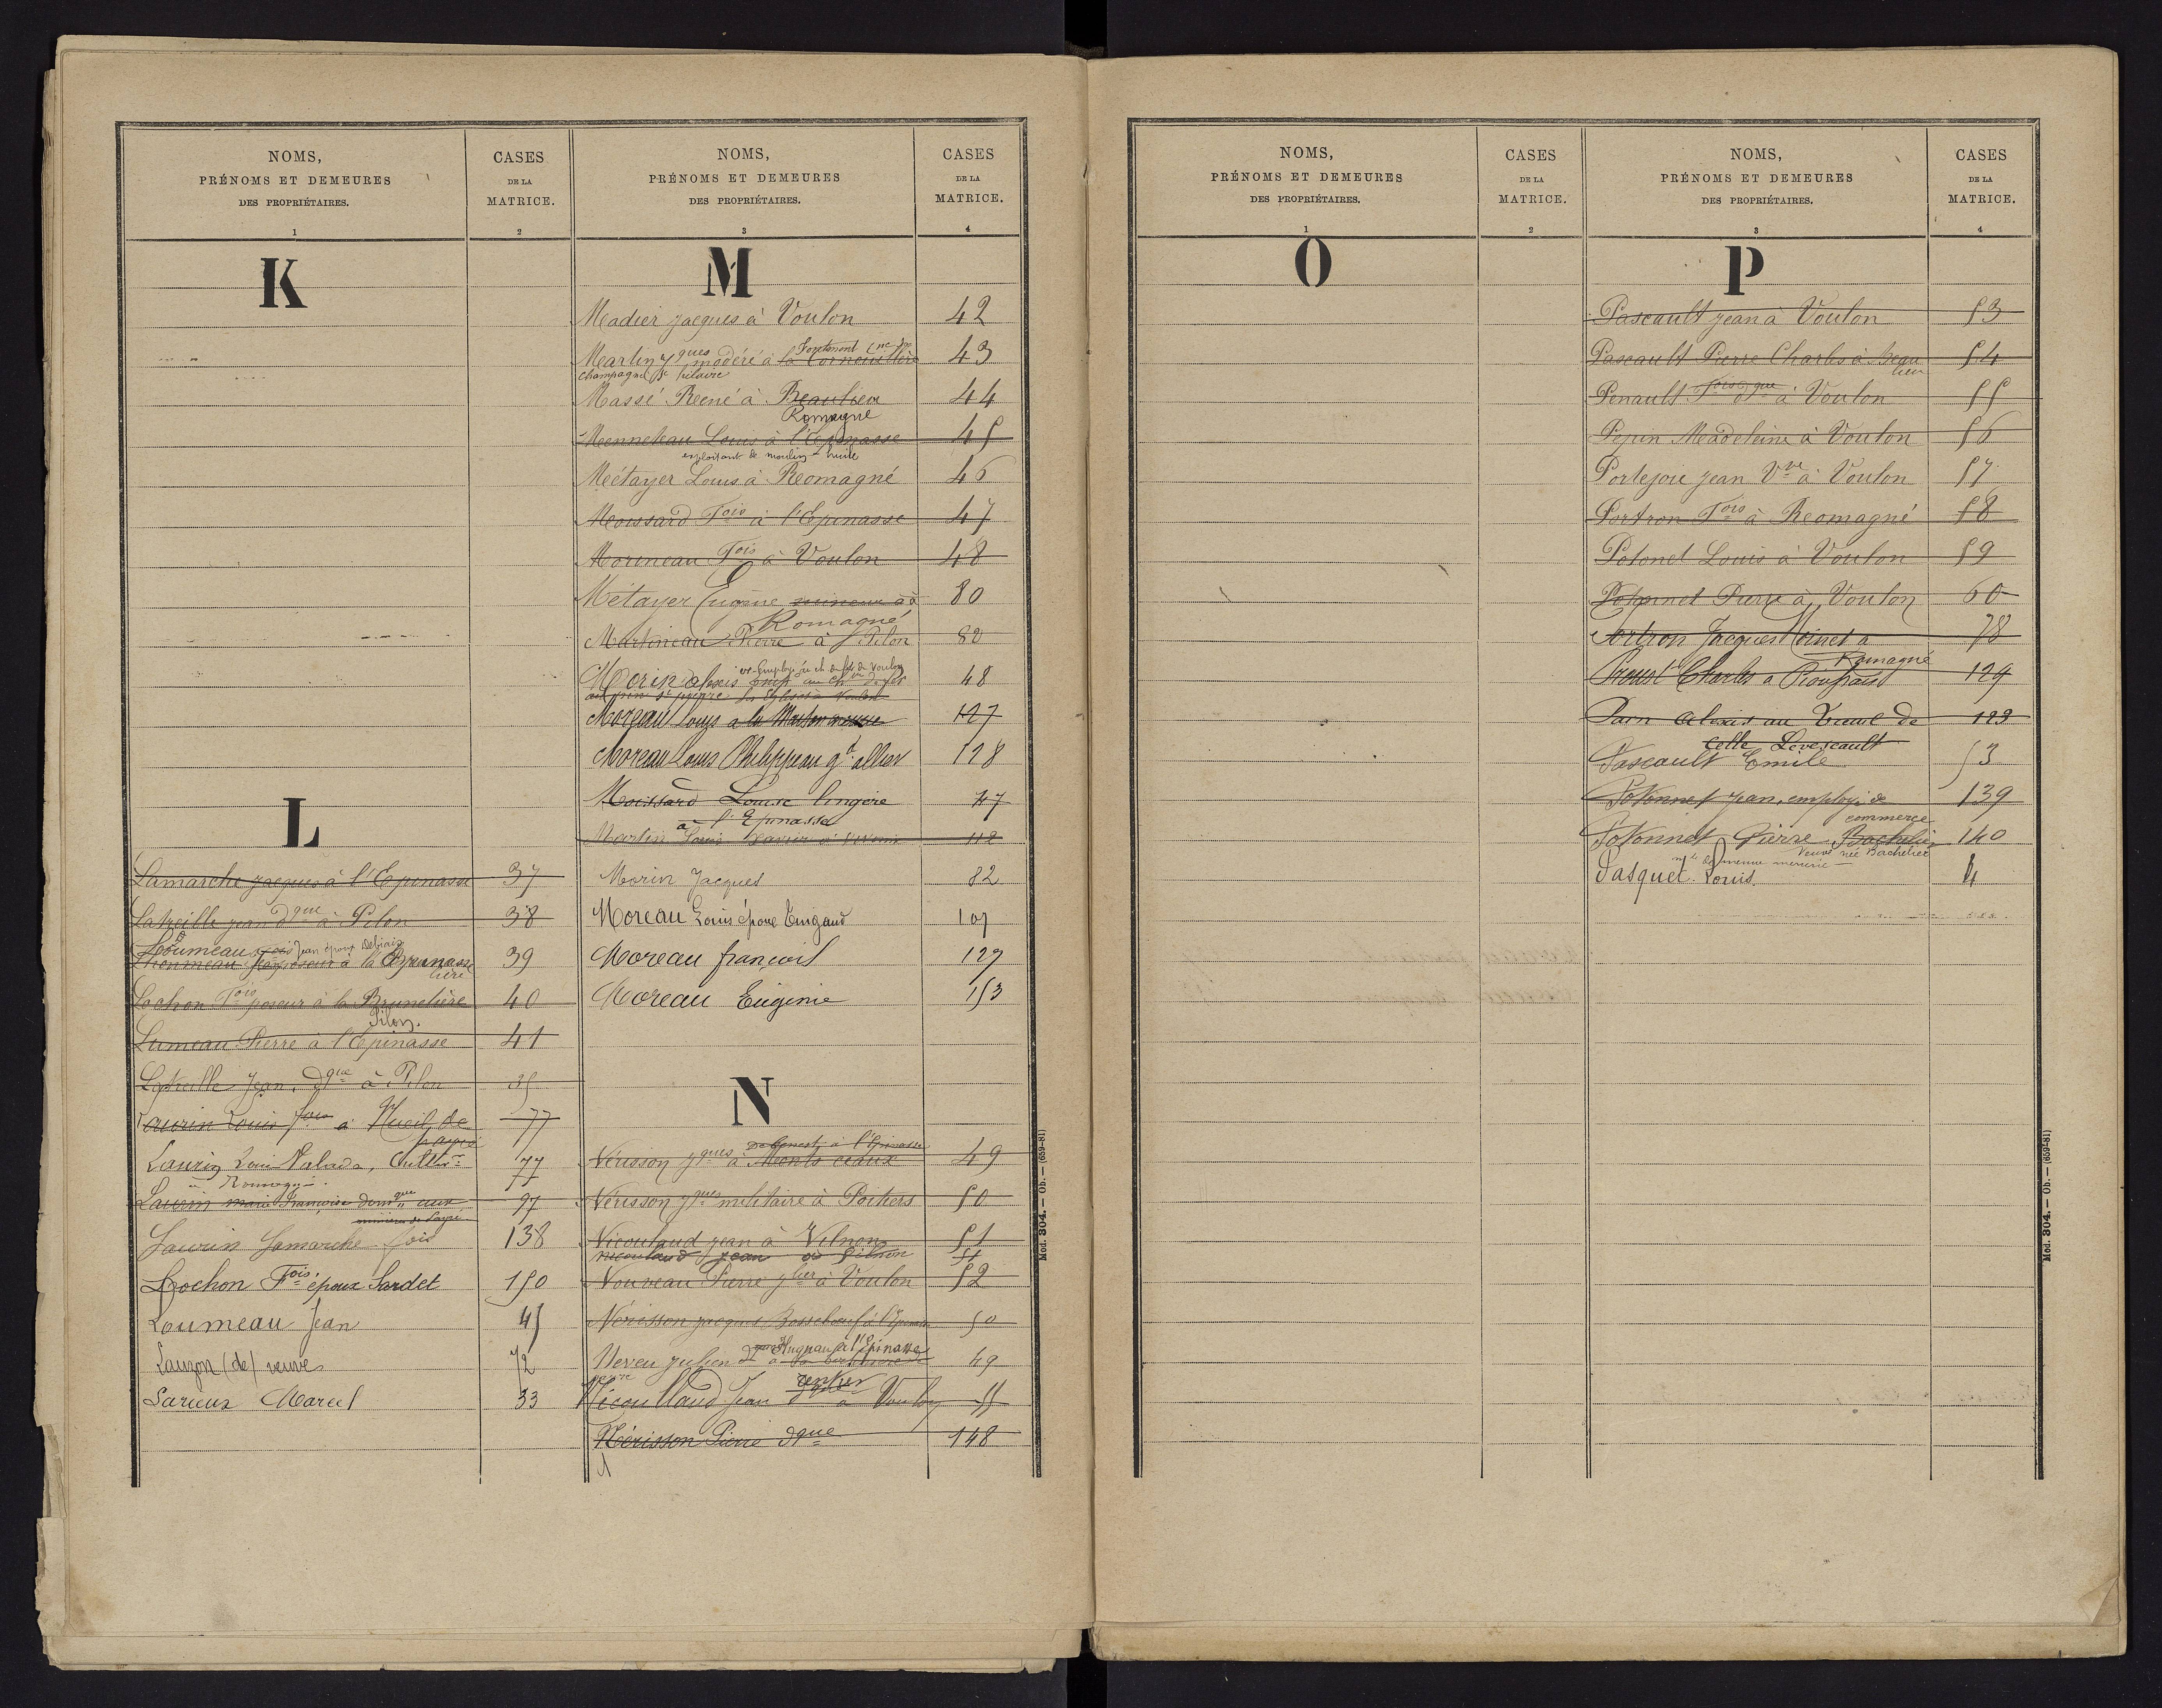 NOMS,
PRÉNOMS ET DEMEURES
DES PROPRIÉTAIRES.
1
CASES
DE LA
MATRICE.
2
K
L
Lamarche jacques à l'Epinasse 37
Latreille jean dque à Pilon 38
Loumeau Jean époux
à la Brunasse 39
lière
Lochon Fois poseur à la Brunetière 40
Pilon.
Lumeau Pierre à l'Epinasse 41
Latreille Jean, dque à Pilon 35
Laurin Louis fois à Nueil de 77
Laurin Louis Valade, Cultr 77
à Romagne.
Laurin marie Françoise domque aux 97
minières de Payré
Laurin Lamarche fois 138
Lochon Fois époux Sardet 150
Loumeau Jean 45
Lauzon (de) veuve 72
Larieux Marcel 33
NOMS,
PRÉNOMS ET DEMEURES
DES PROPRIÉTAIRES.
3
CASES
DE LA
MATRICE.
4
M
Madier jacques à Voulon 42
Martin jques modéré à la 43
Champagné St hilaire
Massé René à Beaulieu 44
Romagne
Menneteau Louis à l'Epinasse 45
exploitant de moulin à huile
Métayer Louis à Romagné 46
Moissard Fois à l'Epinasse 47
Morineau Fois à Voulon 48
Métayer Eugène mineur à 80
Romagné
Martineau Pierre à Pilon 82
Morin alexis 48
Moreau Louis à la 127
Moreau Louis Philippeau gd allier 128
Moissard Louise lingère 47
à l'Epinasse
Martin Louis 112
Morin Jacques 82
Moreau Louis époux Guigaud 107
Moreau françois 127
Moreau Eugénie 153
N
de Genest à l'Epinasse
Nérisson jques à Monts ceaux 49
Nérisson jques militaire à Poitiers 50
Nicouland jean à Vilnon 51
nicouland jean à Pilnon 51
Nouveau Pierre jlier à Voulon 52
Nérisson jacques Bosseboeuf à l'Epinasse 50
Neveu Julien 49
rentier
Nicoullaud Jean à Voulon 55
Nérisson Pierre dque 148
Mod. 304. — Ob. — (659-81)
NOMS,
PRÉNOMS ET DEMEURES
DES PROPRIÉTAIRES.
1
CASES
DE LA
MATRICE.
2
O
NOMS,
PRÉNOMS ET DEMEURES
DES PROPRIÉTAIRES.
3
CASES
DE LA
MATRICE.
4
P
Pascault jean à Voulon 53
Pascault Pierre Charles à Beau 54
lieu
Penault Fois dque à Voulon 55
Pepin Madeleine à Voulon 56
Portejoie jean Vve à Voulon 57
Portron Fois à Romagné 58
Potonet Louis à Voulon 59
Potonnet Pierre à Voulon 60
Portron Jacques Moinet à 78
Romagné
Proust Charles à 129
Pain Alexis au Breuil de 123
Celle Levescault
Pascault Emile 53
Potonnet Jean, employé de 139
commerce
Potonnet Pierre Bachelier 140
Veuve née Bachelier
mde de menue mercerie
Pasquet Louis. 4
Mod. 304. — Ob. — (659-81)